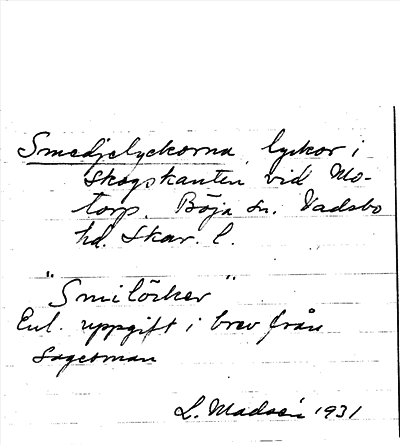 Smedjelyckorna, lyckor i
Skogskanten vid Mo-
torp. Böja sn. Vadsbo
hd. Skar. l.
"Smilöcker"
Enl. uppgift i brev från
sagesman
L. Madsén 1931